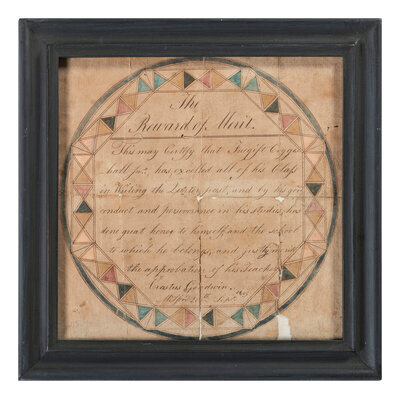 The
Reward of Merit.
This may Certify that Freegift Cogges
hall Junr. has excelled all of his Class
in Writing the Quarter past, and by his good
conduct and perseverance in his studies, has
done great honor to himself and the school
to which he belongs, and justly merits
the approbation of his Teacher
Erastus Goodwin.